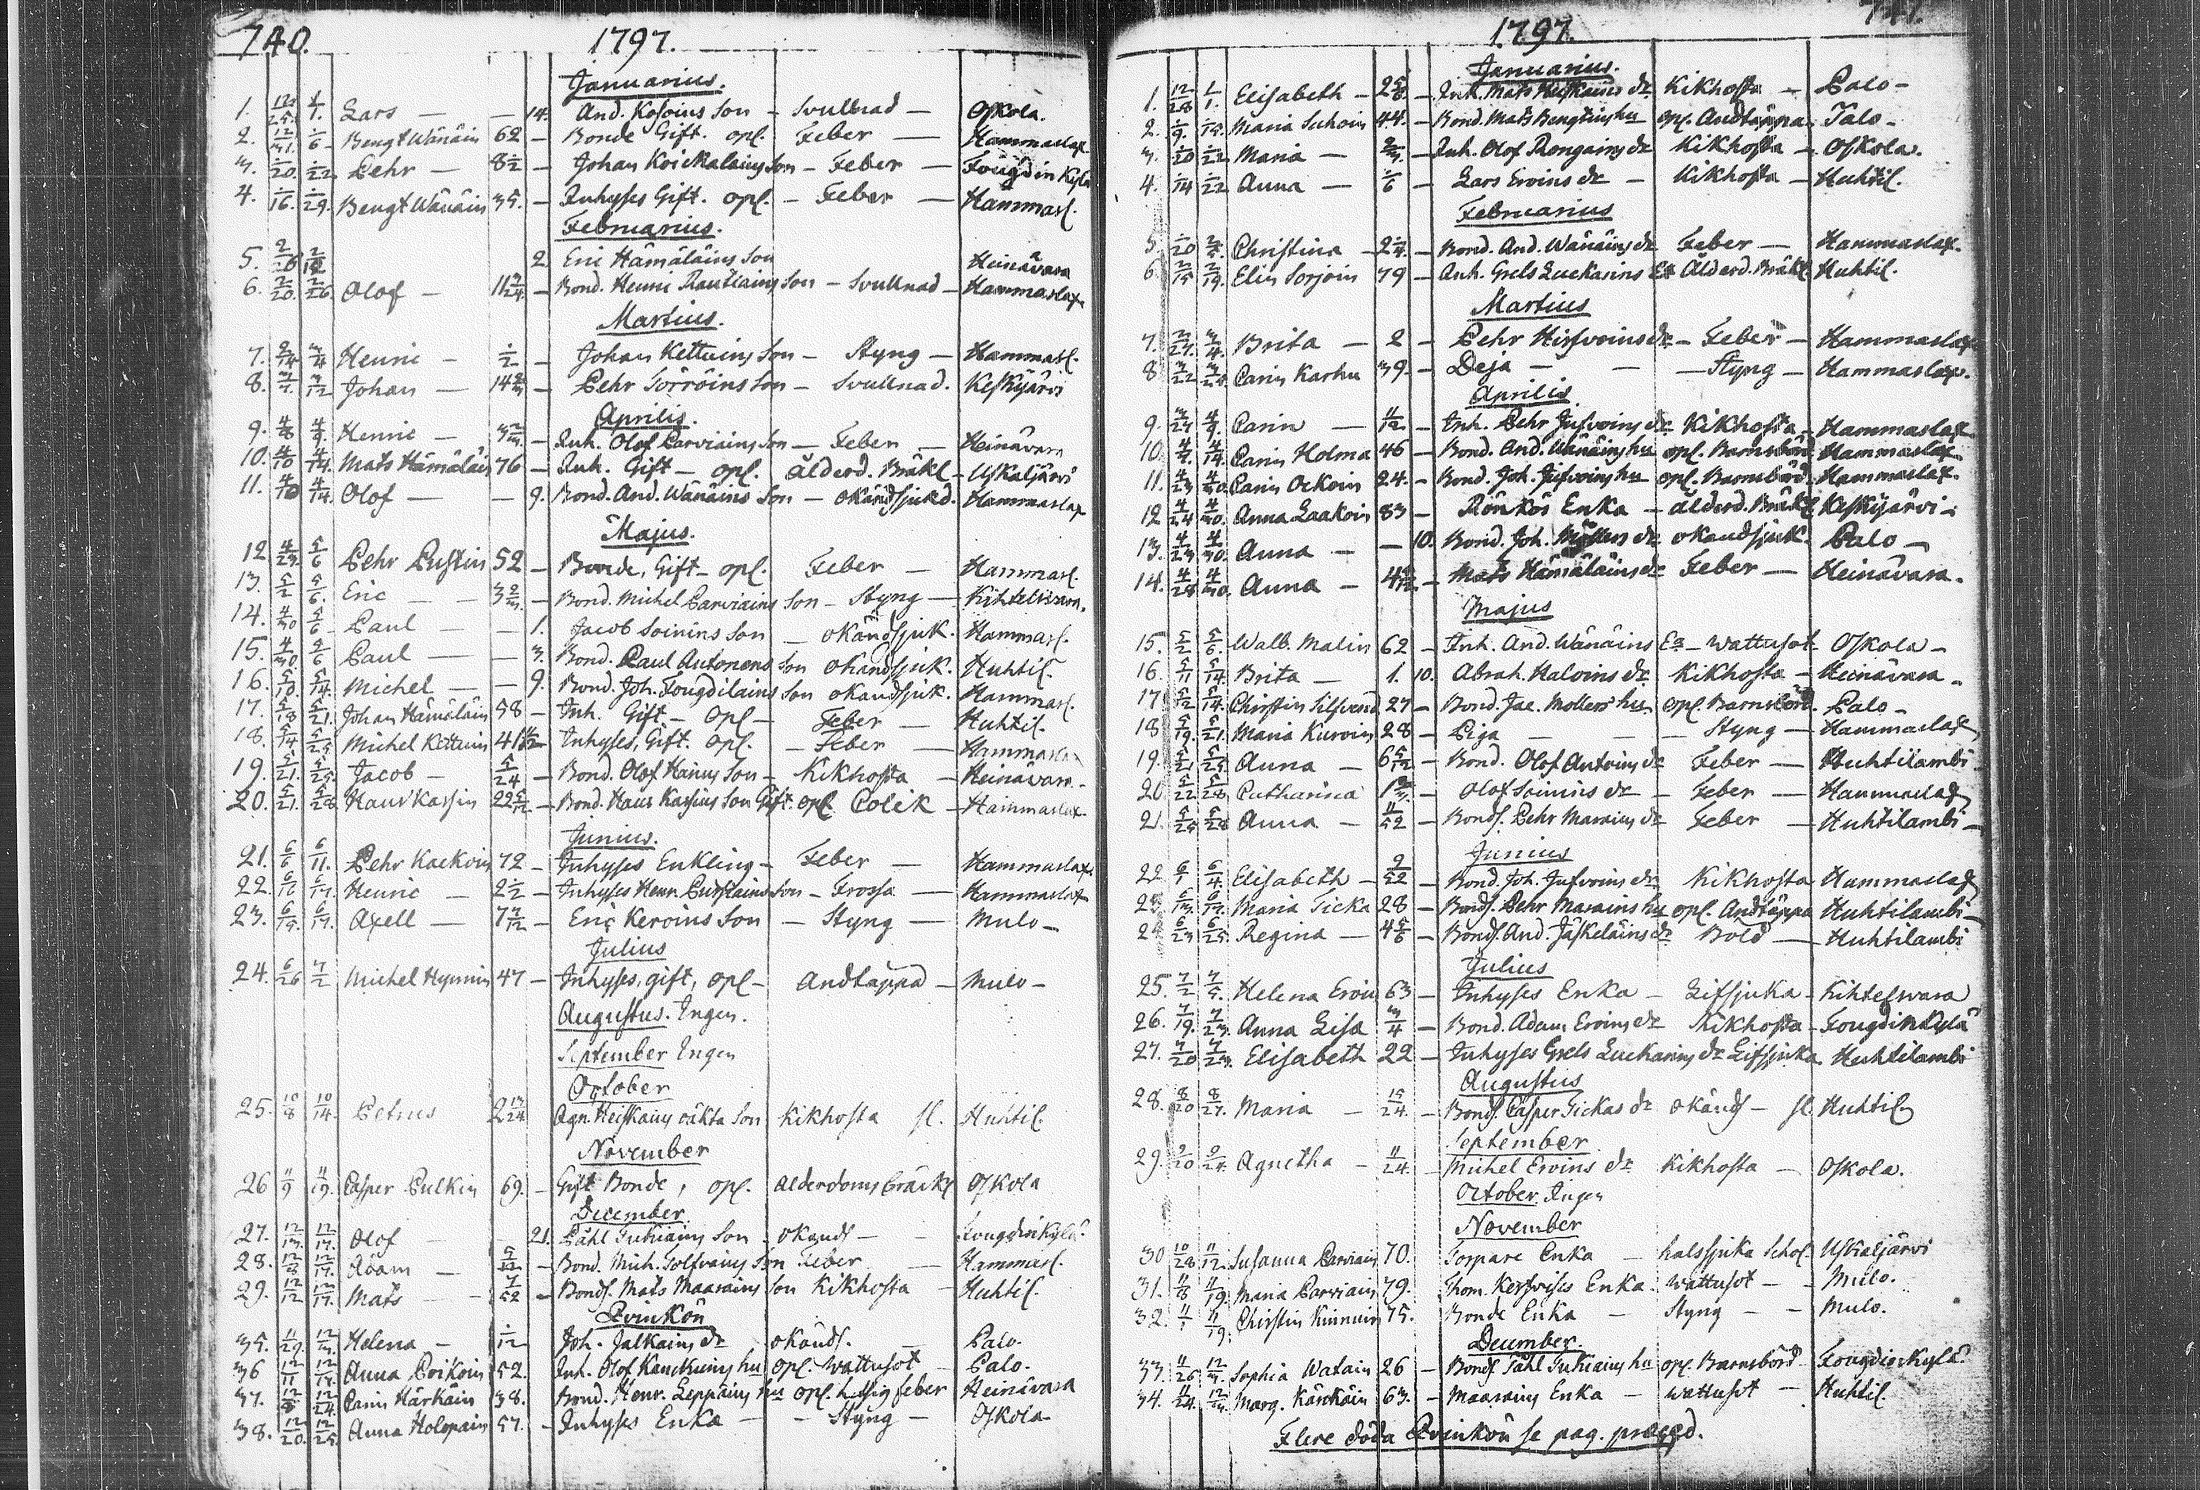 740.
1797.
Januarius.
1. 12/25. 1/1. Lars — — 14. And. Kosoins Son — Svullnad — Oskola.
2. 12/31. 1/6 Bengt Wänäin 62 — Bonde Gift. opl. Feber — Hammaslax
3. 1/20. 1/22 Pehr — 8 1/2 — Johan Koickalains Son — Feber — Fougdin Kylä
4. 1/16. 1/29. Bengt Wänäin 35. — Inhyses Gift. opl. — Feber — Hammasl.
Februarius.
5. 2 Eric Hämäläins Son Heinävara
6. 2/20. 2/26 Olof — — Bond. Henric Rautiains Son — Svullnad — Hammaslax
Martius.
7. 2/14 3/4 Henric — 1/2 — Johan Kettuins Son — Styng — Hammasl.
8. 3/7. 3/12 Johan — 14 2/3 — Pehr Törröins Son — Svullnad. Keskijärvi
Aprilis.
9. 4/8 4/9. Henric — 3 2/3 — Inh. Olof Parviains Son — Feber — Heinävara
10. 4/10 4/14. Mats Hämäläin 76 — Inh. Gift — opl. ålderd. Bräkl. — Uskaljärvi
11. 4/10 4/14. Olof — — 9. Bond. And. Wänäins Son — okändsjukd. Hammaslax
Majus.
12 4/29. 5/6 Pehr Pustin 52 — Bonde, Gift — opl. Feber — Hammasl.
13. 5/2 5/6. Eric — — 3 2/3. — Bond. Michel Parviains Son — Styng — Kihtelisvara.
14. 4/30 5/6 Paul — — 1. Jacob Soinins Son — okändsjuk. Hammasl.
15. 4/30. 5/6 Paul — — 3. Bond. Paul Antonens Son okändsjuk. Huhtil.
16. 5/10. 5/14. Michel — — 9. Bond. Joh. Fougdilains Son okändsjuk. Hammasl.
17. 5/18 5/21. Johan Hämäläin 58 — Inh. Gift — Opl — Feber — Huhtil.
18. 5/14 5/25 Michel Kettuin — Inhyses, Gift. Opl. — Feber — Hammaslax
19. 5/21. 5/25. Jacob — 5/24 — Bond. Olof Hainus Son — Kikhosta — Heinavara.
20. 5/21. 5/28 Hans Kassin 22 5/12 — Bond. Hans Kassins Son Gift. opl. Colik — Hammaslax
Junius.
21. 6/6 6/11. Pehr Kackoin 72 — Inhyses Enkling — Feber — Hammaslax
22. 6/16 6/17. Henric — 2 1/2 — Inhyses Henr. Purstains Son — Frossa — Hammaslax
23. 6/15. 6/17. Axell — 7 7/12 — Eric Keroins Son — Styng — Mulo —
Julius
24. 6/26 7/2 Michel Hynnin 47 — Inhyses, gift, opl — Andtäppa — Mulo —
Augustus. Ingen.
September Ingen
October
25. 10/8 10/14. Petrus 2 13/24 Agn. Heiskains oäkta Son Kikhosta sl. Huhtil.
November
26 11/9 11/19. Casper Pulkin 69. — Gift Bonde, opl. Alderdoms bräckl Oskola
December
27. 12/13. 12/17. Olof 21. Påhl Turkiains Son — okänds — — Fougdinkylä
28. 12/8 12/17. Adam — 5/12 — Bond. Mich. Tolfvains Son Feber Hammasl.
29. 12/12 12/17. Mats — — 7/52 — Bonds. Mats Maarains Son Kikhosta — Huhtil.
Qvinkön
35. 11/29. 12/3. Helena — 1/12 — Joh. Jalkains dr — okänds. — Palo.
36 12/11 12/17. Anna Poikoin 52. — Inh. Olof Kauckuins hu opl. Wattusot — Palo.
37. 12/8 12/24 Carin Härkäin 38. — Bond. Henr. Leppäins hu opl. hitsig feber Heinävara
38. 12/20. 12/25. Anna Holopain 57. — Inhyses Enka — — Styng — Oskola
741.
1797.
Januarius.
1. 12/28 1/1. Elisabeth — 2 5/6 — Inh. Mats Heiskains dr Kikhosta — Palo —
2. 1/9. 1/15. Maria Suhoin 44. — Bond. Mats Bengtins hu opl. Andtäppa. Talo —
3. 1/20 1/22 Maria — 2/3. — Inh. Olof Rongains dr Kikhosta — Oskola.
4. 1/14 1/22 Anna — 1/6 — Lars Eroins dr — Kikhosta — Huhtil.
Februarius
5. 1/20 2/5. Christina — 2 1/4. — Bond. And. Wänäins dr Feber — Hammaslax.
6. 2/15 2/19. Elin Sorjoin 79 — Inh. Grels Luckarins Ea Ålderd. Bräkl. Huhtil.
Martius
7. 2/27. 3/4. Brita — 2 — Pehr Hirfvoins dr — Feber — Hammaslax
8 3/22 3/25. Carin Karhu 39. — Deja — — — Styng — Hammaslax.
Aprilis
9. 3/27 4/9. Carin — 11/12 — Inh. Pehr Jufvoins dr Kikhosta — Hammaslax
10. 4/7. 4/14. Carin Holma 46 — Bond. And. Wänäins hu opl. Barnsbörd Hammaslax
11. 4/23 4/30. Carin Ockoin 24. — Bond. Joh. Jufvoins hu opl. Barnsbörd. Hammaslax.
12 4/24 4/30. Anna Laakoin 83 — Rönkös Enka — ålderd. Bräkl Keskijärvi —
13. 4/23 4/30. Anna — — 10. Bond. Joh. Möllers dr okändsjuk. Palo —
14. 4/28 4/30. Anna — — Mats Hämäläins dr Feber — Heinävara.
Majus
15. 5/2 5/6. Walb. Malin 62 — Inh. And. Wänäins Ea — Wattusot — Oskola —
16. 5/11 5/14. Brita — 1. 10. Abrah. Haloins dr. Kikhosta — Heinävara —
17. 5/12 5/14. Christin Silfvend 27 — Bond. Jac. Mollers hu opl. Barnsbörd. Palo —
18 5/19. 5/21. Maria Kuroin 28 — Piga — — — Styng — Hammaslax
19. 5/21 5/25 Anna — 6 5/12 — Bond. Olof Antoins dr Feber — Huhtilambi
20. 5/22 5/28 Catharina 1 2/3. — Olof Soinins dr — Feber — Hammaslax
21. 5/25 5/28 Anna — 11/52 — Bonds. Pehr Marains dr Feber — Huhtilambi —
Junius
22 6/1 6/4 Elisabeth — 9/52 — Bond. Joh. Jufvoins dr. Kikhosta Hammaslax
23. 6/13 6/17. Maria Ticka 28 — Bonds. Pehr Marains hu opl. Andtäppa Huhtilambi —
24 6/23 6/25. Regina — 4 5/6 — Bonds. And. Jäskeläins dr Böld — Huhtilambi
Julius
25. 7/2 7/9. Helena Eroin 63 — Inhyses Enka — Lifsjuka — Kihtelswara
26. 7/19. 7/23. Anna Lisa 3/4 — Bond. Adam Eroins dr Kikhosta — Fougdinkylä
27. 7/20 7/23. Elisabeth 22 — Inhyses Grels Luckarins dr Lifsjuka Huhtilambi
Augustus
28. 8/20 8/27. Maria — 15/24. — Bonds. Casper Tickas dr okänds — sl. Huhtil.
September
29. 9/20 9/24. Agnetha — 11/24. — Michel Eroins dr Kikhosta — Oskola.
October. Ingen
November
30 10/28 11/12. Susanna Parviain 70. Torpare Enka — halssjuka Schol. Uskaljärvi
31. 11/8 11/19. Maria Parviain 79. Thom. Kerfvises Enka. Wattusot — — Mulo.
32. 11/1 11/19. Christin Kinnuin 75. Bonde Enka — Styng — — Mulo.
December.
33. 11/26 12/3. Sophia Watain 26 — Bonds Påhl Turkiains hu opl. Barnsbörd. Fougdinkylä
34. 11/24. 12/3. Marg. Kärckäin 63. — Maarains Enka — Wattusot — Huhtil.
Flere döda Qvinkön se pag. præced.